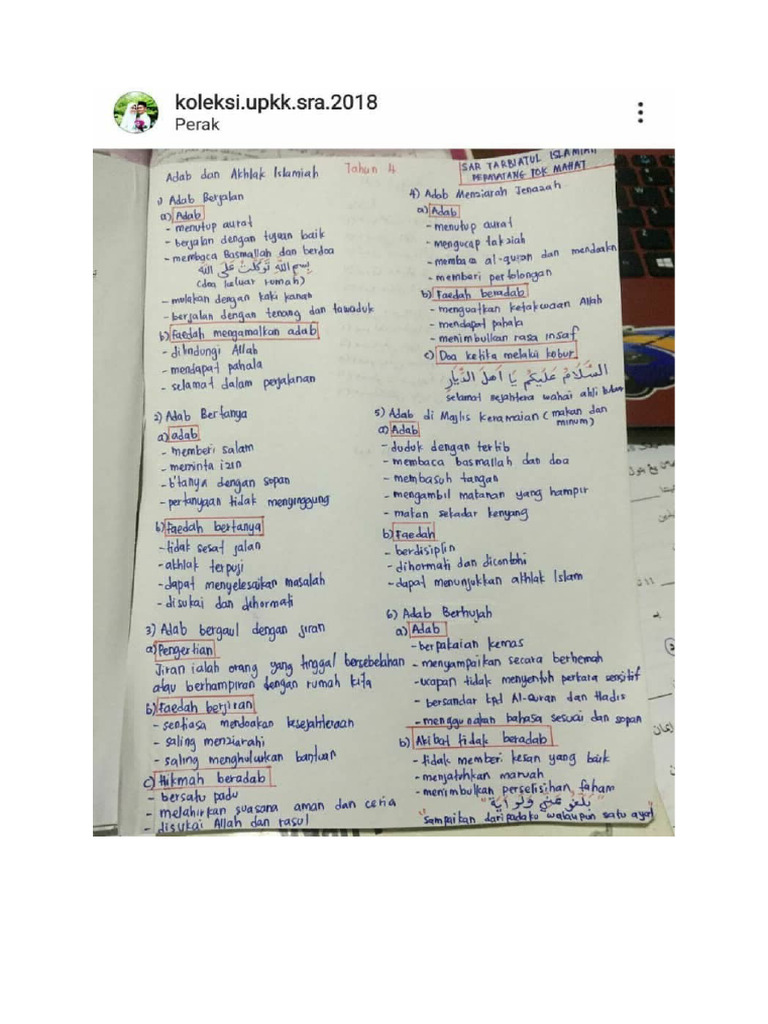 koleksi.upkk.sra.2018
Perak
Adab dan Akhlak Islamiah
Tahun 4
SAR TARBIATUL ISLAMIAH
PERMATANG TOK MAHAT
1) Adab Berjalan
a) Adab
- menutup aurat
- berjalan dengan tujuan baik
- membaca Basmallah dan berdoa
بِسْمِ اللَّهِ تَوَكَّلْتُ عَلَى اللَّهِ
(doa keluar rumah)
- mulakan dengan kaki kanan
- berjalan dengan tenang dan tawaduk
b) Faedah mengamalkan adab
- dilindungi Allah
- mendapat pahala
- selamat dalam perjalanan
2) Adab Bertanya
a) adab
- memberi salam
- meminta izin
- b'tanya dengan sopan
- pertanyaan tidak menyinggung
b) Faedah bertanya
- tidak sesat jalan
- akhlak terpuji
- dapat menyelesaikan masalah
- disukai dan dihormati
3) Adab bergaul dengan jiran
a) Pengertian
Jiran ialah orang yang tinggal bersebelahan
atau berhampiran dengan rumah kita
b) Faedah berjiran
- sentiasa mendoakan kesejahteraan
- saling menziarahi
- saling menghulurkan bantuan
c) Hikmah beradab
- bersatu padu
- melahirkan suasana aman dan ceria
- disukai Allah dan rasul
4) Adab Menziarah Jenazah
a) Adab
- menutup aurat
- mengucap takziah
- membaca al-quran dan mendoakn
- memberi pertolongan
b) Faedah beradab
- menguatkan ketakwaan Allah
- mendapat pahala
- menimbulkan rasa insaf
c) Doa ketika melalui kubur
السَّلَامُ عَلَيْكُمْ يَا أَهْلَ الدِّيَارِ
selamat sejahtera wahai ahli kubur
5) Adab di Majlis Keramaian (makan dan
minum)
a) Adab
- duduk dengan tertib
- membaca basmallah dan doa
- membasuh tangan
- mengambil makanan yang hampir
- makan sekadar kenyang
b) Faedah
- berdisiplin
- dihormati dan dicontohi
- dapat menunjukkan akhlak Islam
6) Adab Berhujah
a) Adab
- berpakaian kemas
- menyampaikan secara berhemah
- ucapan tidak menyentuh perkara sensitif
- bersandar kpd Al-Quran dan Hadis
- menggunakan bahasa sesuai dan sopan
b) Akibat tidak beradab
- tidak memberi kesan yang baik
- menjatuhkan maruah
- menimbulkan perselisihan faham
"بَلِّغُوا عَنِّي وَلَوْ آيَة"
"sampaikan daripadaku walaupun satu ayat"